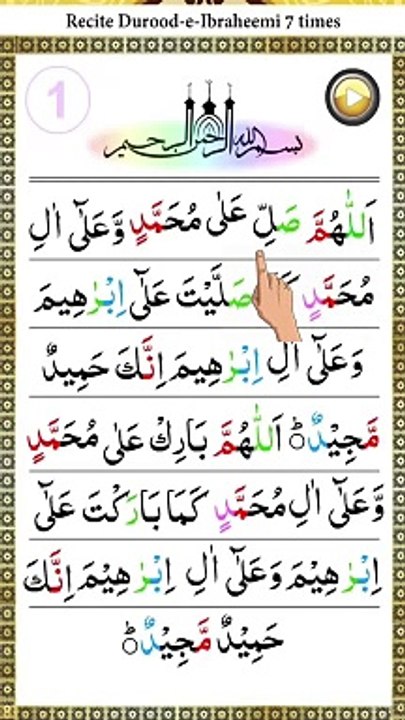 Recite Durood-e-Ibraheemi 7 times
1
بسم الله الرحمن الرحيم
اَللّٰهُمَّ صَلِّ عَلٰی مُحَمَّدٍ وَّعَلٰۤی اٰلِ
مُحَمَّدٍ صَلَّیْتَ عَلٰۤی اِبْرٰهِیمَ
وَعَلٰۤی اٰلِ اِبْرٰهِیمَ اِنَّكَ حَمِیْدٌ
مَّجِیْدٌؕ اَللّٰهُمَّ بَارِكْ عَلٰی مُحَمَّدٍ
وَّعَلٰۤی اٰلِ مُحَمَّدٍ كَمَا بَارَكْتَ عَلٰۤی
اِبْرٰهِیْمَ وَعَلٰۤی اٰلِ اِبْرٰهِیْمَ اِنَّكَ
حَمِیْدٌ مَّجِیْدٌؕ